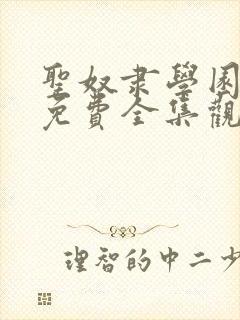 聖奴隶學園
免費全集觀
理智的中二少